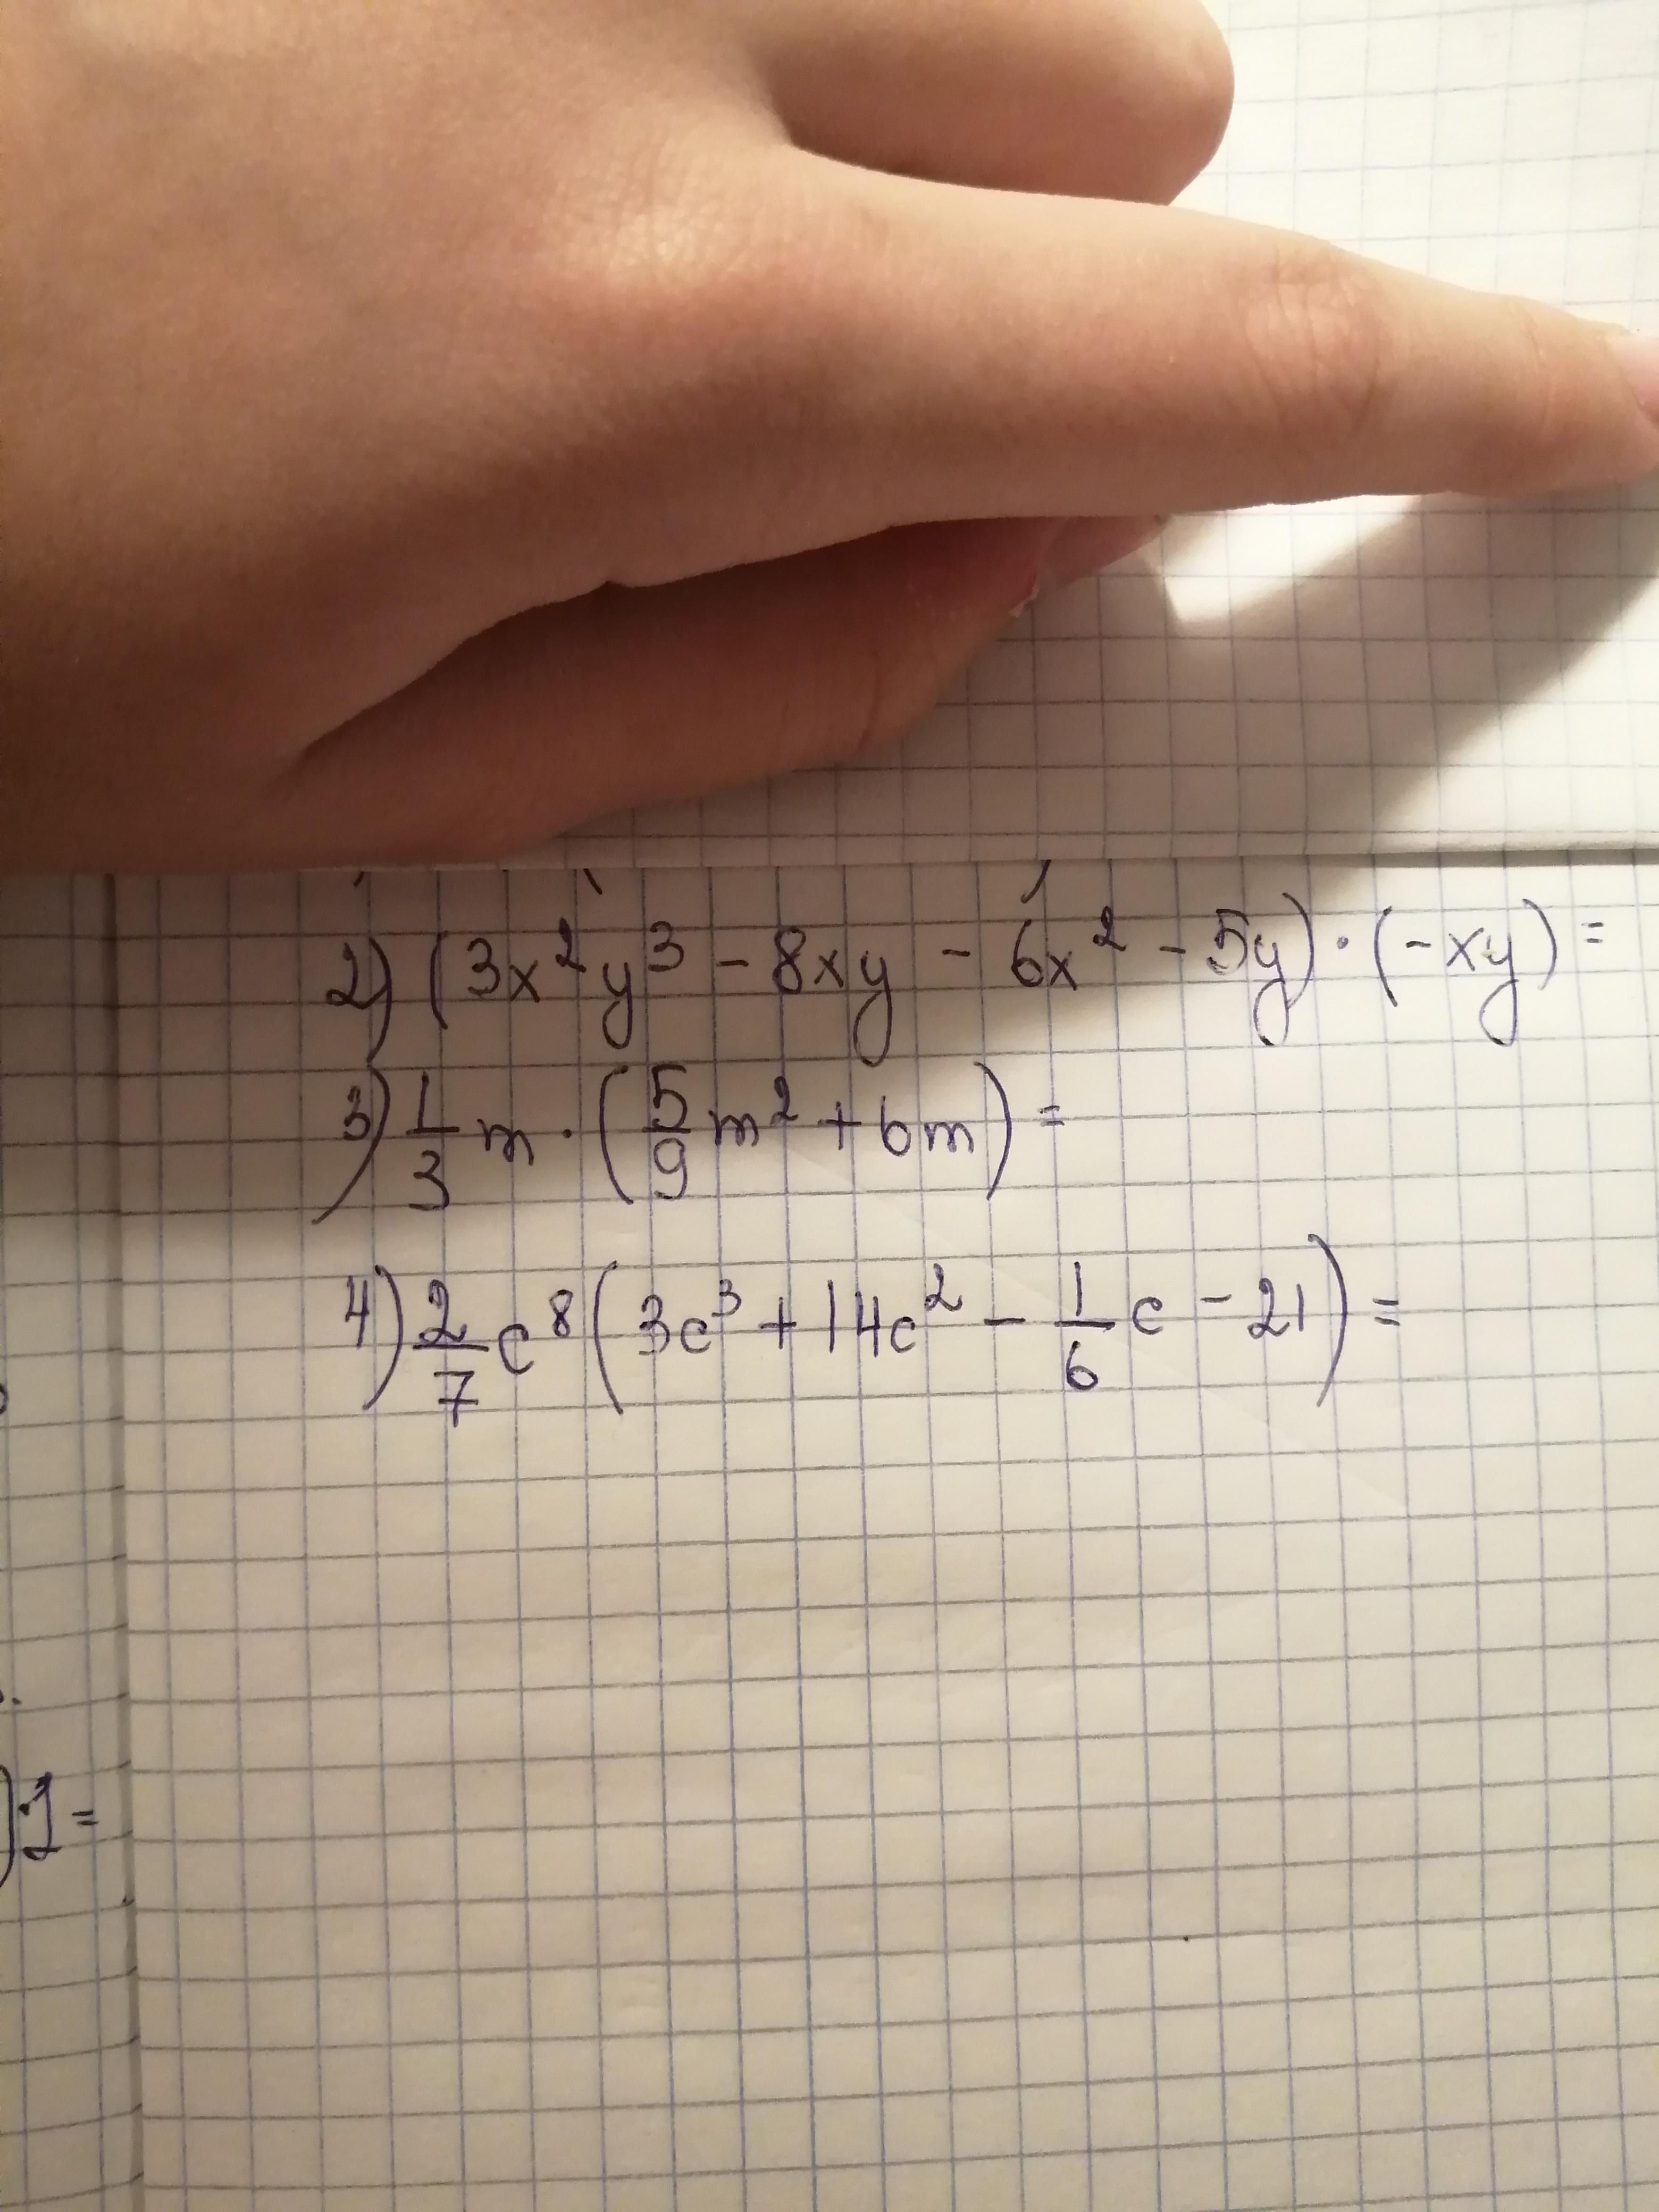 2) (3x²y³ - 8xy - 6x² - 5y) · (-xy) =
3) 1/3 m · (5/9 m² + 6m) =
4) 2/7 c⁸ (3c³ + 14c² - 1/6 c - 21) =